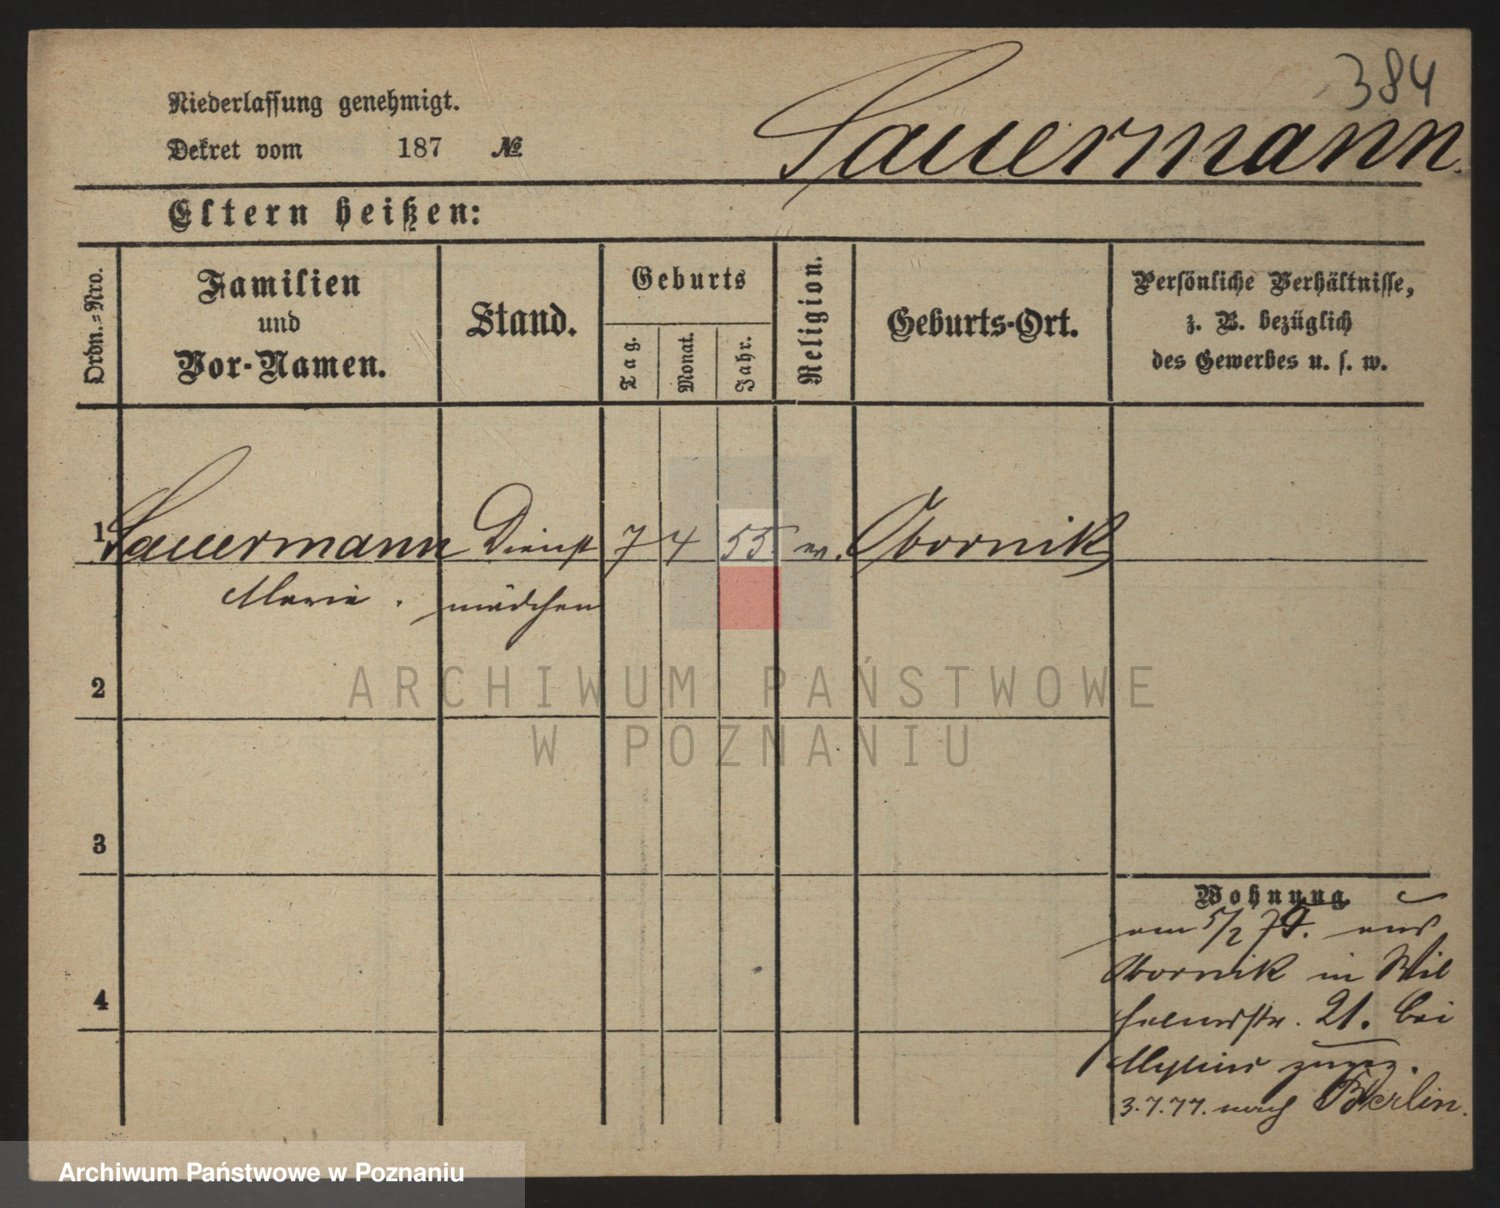 384
Niederlassung genehmigt.
Dekret vom 187 №
Sauermann.
Eltern heißen:
Ordn.=Nro.
Familien
und
Vor-Namen.
Stand.
Geburts
Tag.
Monat.
Jahr.
Religion.
Geburts-Ort.
Persönliche Verhältnisse,
z. B. bezüglich
des Gewerbes u. s. w.
1 Sauermann Dienst 7 4 55 ev. Obornik
Marie. mädchen
2
ARCHIWUM PAŃSTWOWE
W POZNANIU
3
4
Wohnung.
am 5/2 75. aus
Obornik in Wil
helmstr. 21. bei
Mylius zugez.
3.7.77. nach Berlin.
Archiwum Państwowe w Poznaniu